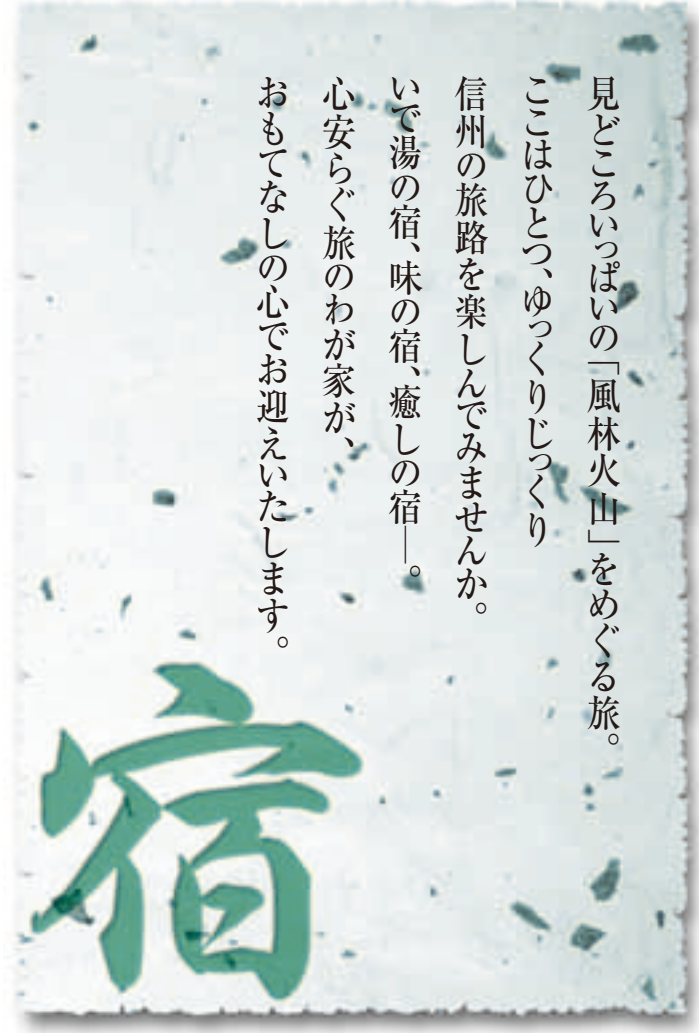 見どころいっぱいの「風林火山」をめぐる旅。
ここはひとつ、ゆっくりじっくり
信州の旅路を楽しんでみませんか。
いで湯の宿、味の宿、癒しの宿―。
心安らぐ旅のわが家が、
おもてなしの心でお迎えいたします。
宿